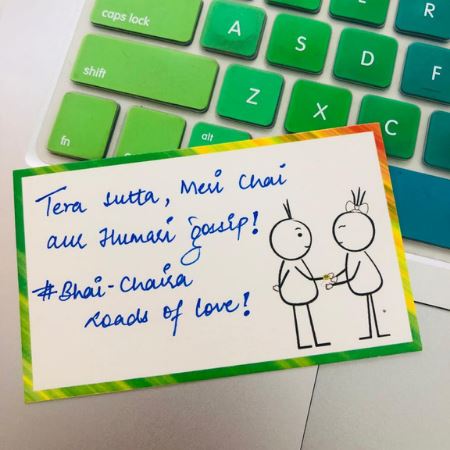 caps lock
A
S
D
F
R
shift
Z
X
C
fn
alt
Tera sutta, Meri Chai
aur Humari gossip!
#Bhai-Chaira
loads of love!